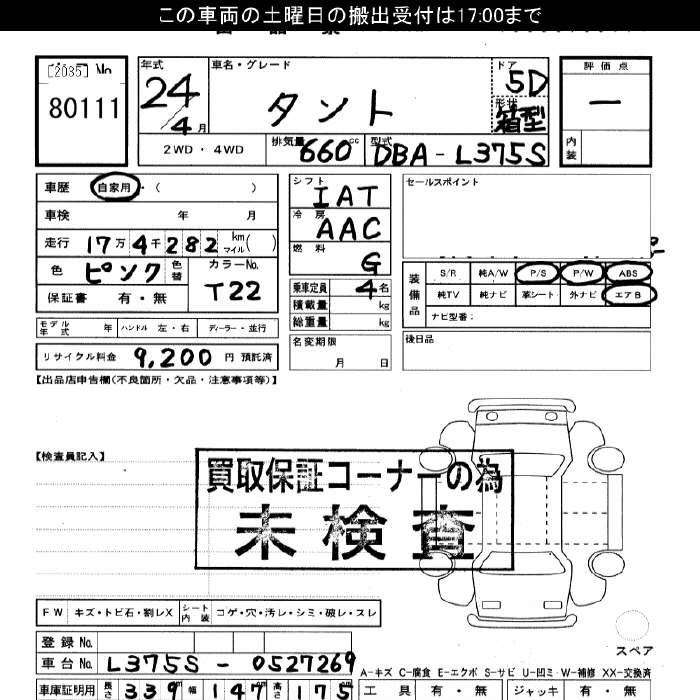 この車両の土曜日の搬出受付は17:00まで
[2035] No
80111
年式
24
4月
車名・グレード
タント
ドア
5D
形状
箱型
評価点
ー
内装
2WD・4WD
排気量
660cc
型式
DBA-L375S
車歴 自家用・( )
車検 年 月
走行 17万4千282 km マイル( )
色 ピンク 色替
カラーNo.
T22
保証書 有・無
シフト
IAT
冷房
AAC
燃料
G
乗車定員 4名
積載量 kg
総重量 kg
セールスポイント
装備品
S/R 純A/W P/S P/W ABS
純TV 純ナビ 革シート 外ナビ エアB
ナビ型番:
モデル年式 年 ハンドル 左・右 ディーラー・並行
リサイクル料金 9,200 円 預託済
名変期限
月 日
後日品
【出品店申告欄(不良箇所・欠品・注意事項等)】
【検査員記入】
買取保証コーナーの為
未検査
FW キズ・トビ石・割レX シート内装 コゲ・穴・汚レ・シミ・破レ・スレ
スペア
登録No.
車台No. L375S-0527269
A-キズ C-腐食 E-エクボ S-サビ U-凹ミ W-補修 XX-交換済
車庫証明用 長さ 339 幅 147 高さ 175
工具 有・無 ジャッキ 有・無